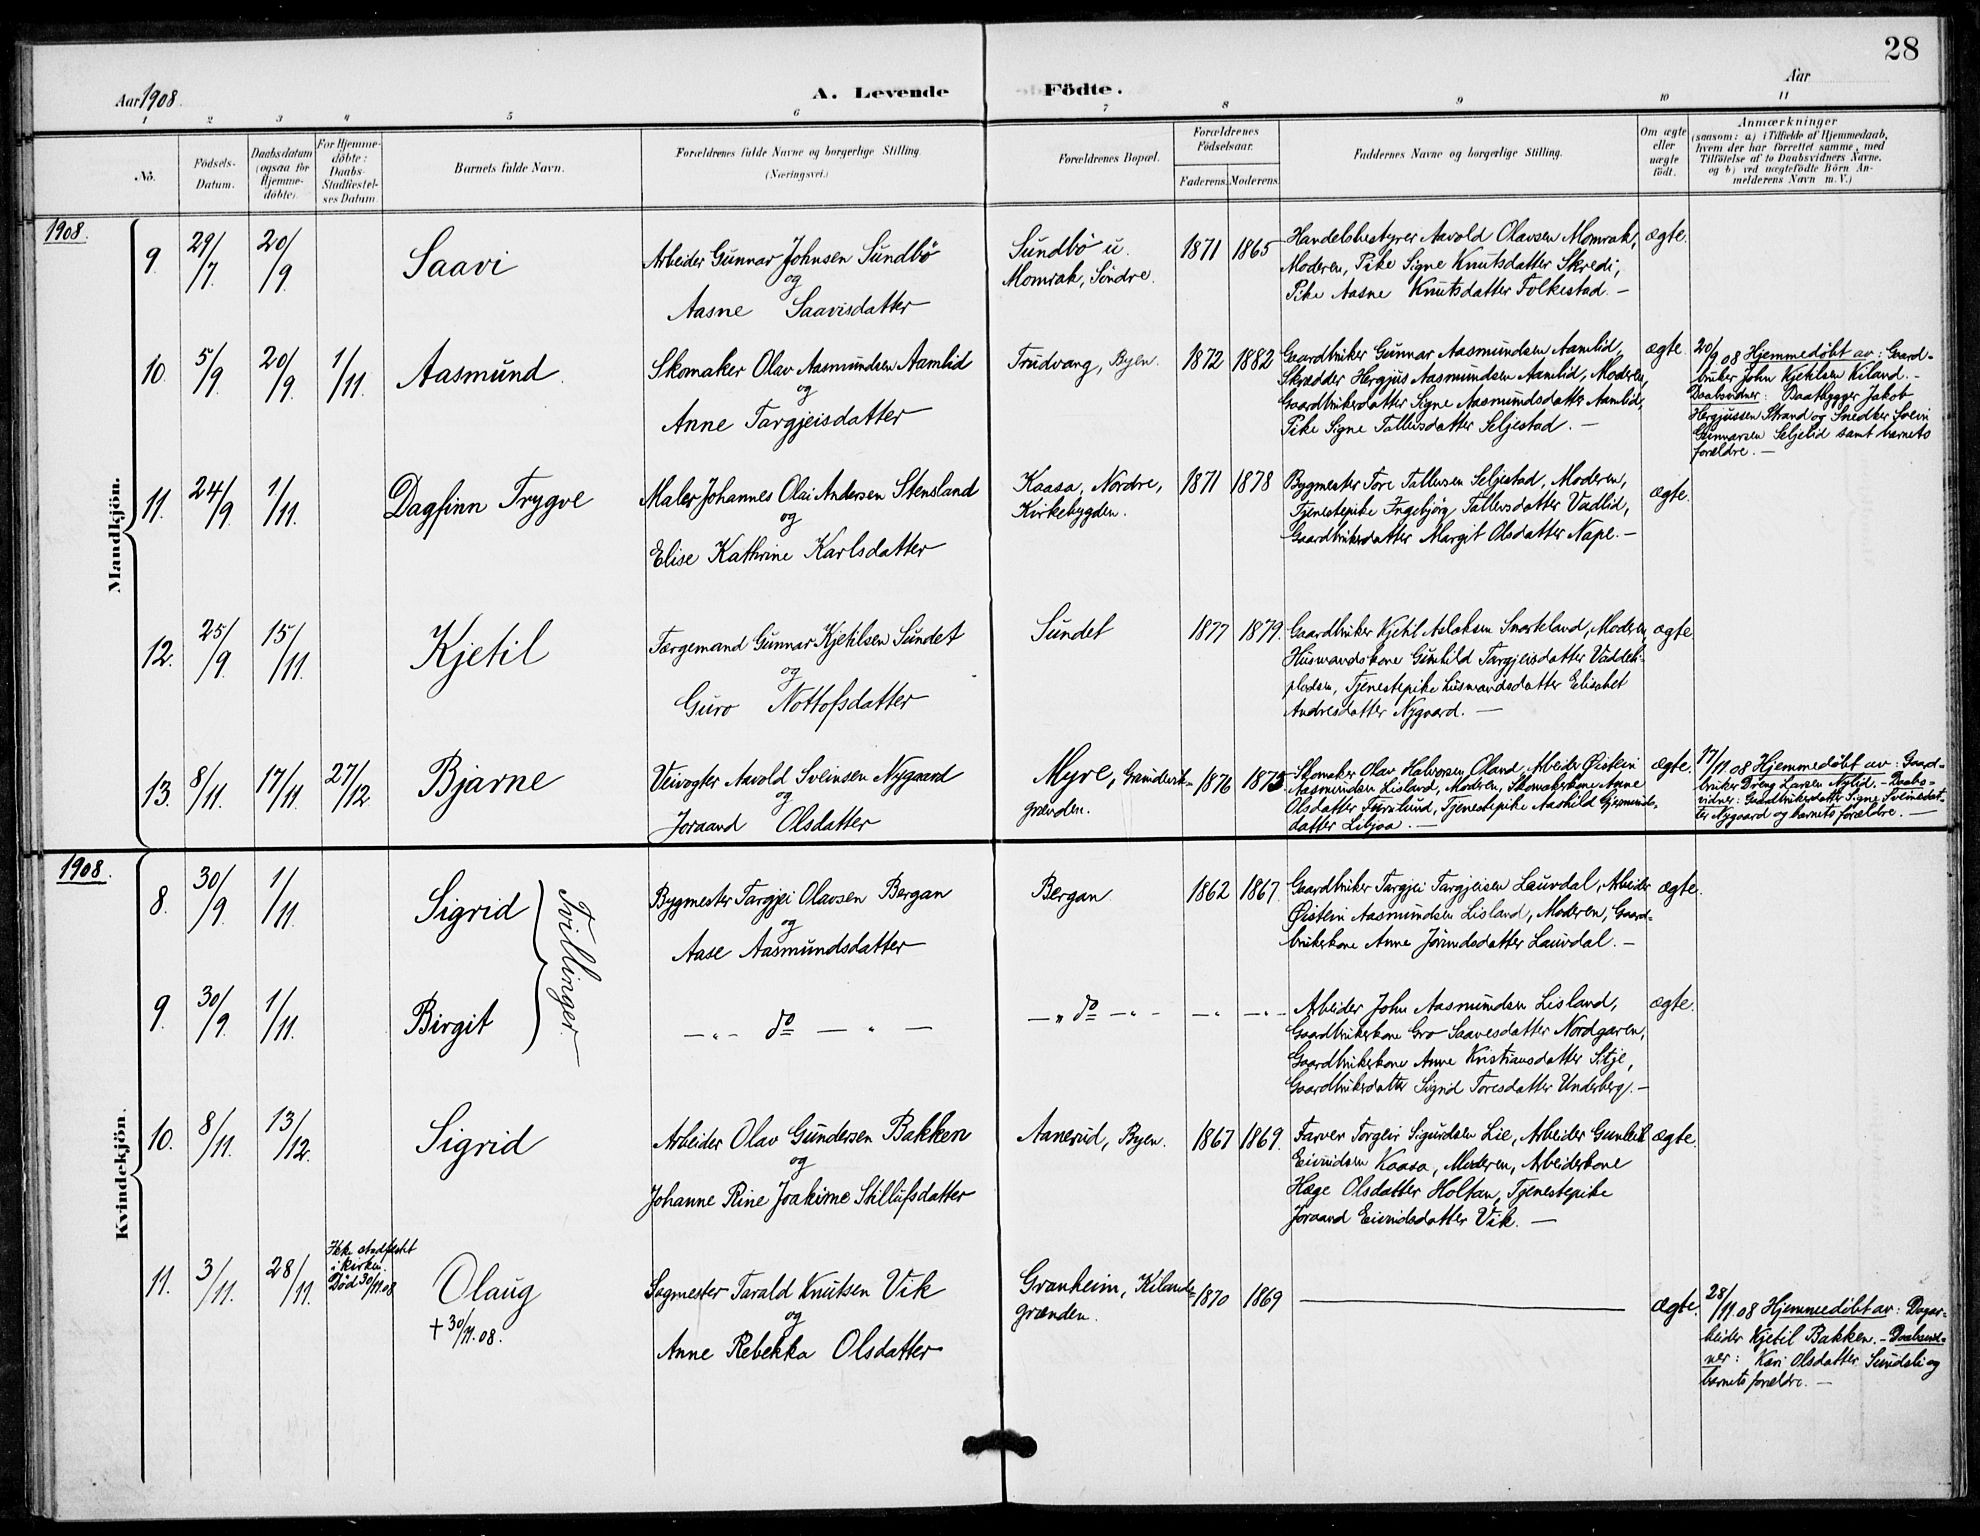 28
Aar 1908.
A. Levende Födte.
Aar
1 2 3 4 5 6 7 8 9 10 11
No.
Födsels-
Datum.
Daabsdatum
(ogsaa for
Hjemme-
döbte).
For Hjemme-
döbte:
Daabs-
Stadfæstel-
ses Datum
Barnets fulde Navn.
Forældrenes fulde Navne og borgerlige Stilling.
(Næringsvei.)
Forældrenes Bopæl.
Forældrenes
Födselsaar.
Faderens. Moderens.
Faddernes Navne og borgerlige Stilling.
Om ægte
eller
uægte
födt.
Anmærkninger
(saasom: a) i Tilfælde af Hjemmedaab,
hvem der har forrettet samme, med
Tilföielse af to Daabsvidners Navne,
og b) ved uægtefödte Börn An-
melderens Navn m. V.)
1908.
Mandkjön.
9. 29/7. 20/9. Saavi
Arbeider Gunnar Johnsen Sundbö
og
Aasne Saavisdatter
Sundbö u.
Momrak, Söndre.
1871 1865
Handelsbestyrer Aavold Olavsen Momrak,
Moderen, Pike Signe Knutsdatter Skredi,
Pike Aasne Knutsdatter Folkestad. —
ægte.
10. 5/9. 20/9. 1/11. Aasmund.
Skomaker Olav Aasmundsen Aamlid
og
Anne Targjeisdatter
Trudvang, Byen.
1872 1882
Gaardbruker Gunnar Aasmundsen Aamlid,
Skrædder Hergjus Aasmundsen Aamlid, Moderen,
Gaardbrukerdatter Signe Aasmundsdatter Aamlid,
Pike Signe Tallevsdatter Seljestad. —
ægte
20/9 08 Hjemmedøbt av: Gaard-
bruker John Kjetilsen Kiland. -
Daabsvidner: Baatbygger Jakob
Hergjussen Strand og Snedker Svein
Gunnarsen Seljelid samt barnets
forældre. —
11. 24/9. 1/11. Dagfinn Trygve
Maler Johannes Olai Andersen Stensland
og
Elise Kathrine Karlsdatter
Kaasa, Nordre,
Kirkebygden.
1871 1878
Bygmester Tore Tallevsen Seljestad, Moderen,
Tjenestepike Ingebjörg Tallevsdatter Vadlid,
Gaardbrukerdatter Margit Olsdatter Nape. —
ægte.
12. 25/9. 15/11. Kjetil
Færgemand Gunnar Kjetilsen Sundet
og
Guro Nottofsdatter
Sundet
1877 1879.
Gaardbruker Kjetil Aslaksen Snarteland, Moderen,
Husmandskone Gunhild Targjeisdatter
Tjenestepike husmandsdatter Elisabet
Andresdatter Nygaard. —
ægte
13. 8/11. 17/11. 27/12. Bjarne
Veivogter Aavold Sveinsen Nygaard
og
Joraand Olsdatter
Myre,
grænden.
1876 1875
Skomaker Olav Halvorsen Öland, Arbeider Øistein
Aasmundsen Lisland, Moderen, Skomakerkone Anne
Olsdatter Furulund, Tjenestepike Aashild Gjermunds-
datter Libjaa. —
ægte.
17/11 08 Hjemmedøbt av: Gaard-
bruker Dreng Larsen Nylid. - Daabs-
vidner: Gaardbrukerdatter Signe Sveinsdat-
ter Nygaard og barnets forældre. —
1908.
Kvindekjön.
8. 30/9. 1/11. Sigrid
Tvillinger.
Bygmester Targjei Olavsen Bergan
og
Aase Aasmundsdatter
Bergan
1862 1867.
Gaardbruker Targjei Targjeisen Lauvdal, Arbeider
Øistein Aasmundsen Lisland, Moderen, Gaard-
brukerkone Anne Jörundsdatter Lauvdal. —
ægte.
9. 30/9. 1/11. Birgit
—„— do —„—
—„ do —„—
—„— —„—
Arbeider John Aasmundsen Lisland,
Gaardbrukerkone Gro Saavesdatter Nordgaren,
Gaardbrukerkone Anne Kristiansdatter Sitje,
Gaardbrukerdatter Sigrid Toresdatter Underberg. —
ægte.
10. 8/11. 13/12. Sigrid
Arbeider Olav Gundersen Bakken
og
Johanne Rine Joakime Stillufsdatter
Aanerud, Byen.
1867 1869.
Farver Torgeir Sigurdsen Lie, Arbeider Gunleik
Eivindsen Kaasa, Moderen, Arbeiderkone
Hæge Olsdatter Holtan, Tjenestepike
Joraand Eivindsdatter Vik. —
ægte.
11. 3/11. 28/11.
Ikke stadfæstet
i kirken.
Död 30/11.08
Olaug
† 30/11.08.
Sagmester Tarald Knutsen Vik
og
Anne Rebekka Olsdatter
Granheim, Kilands-
grænden.
1870 1869
ægte.
28/11.08 Hjemmedøbt av: Dagar-
beider Kjetil Bakken. - Daabsvid-
ner: Kari Olsdatter Sundsli og
barnets forældre. —